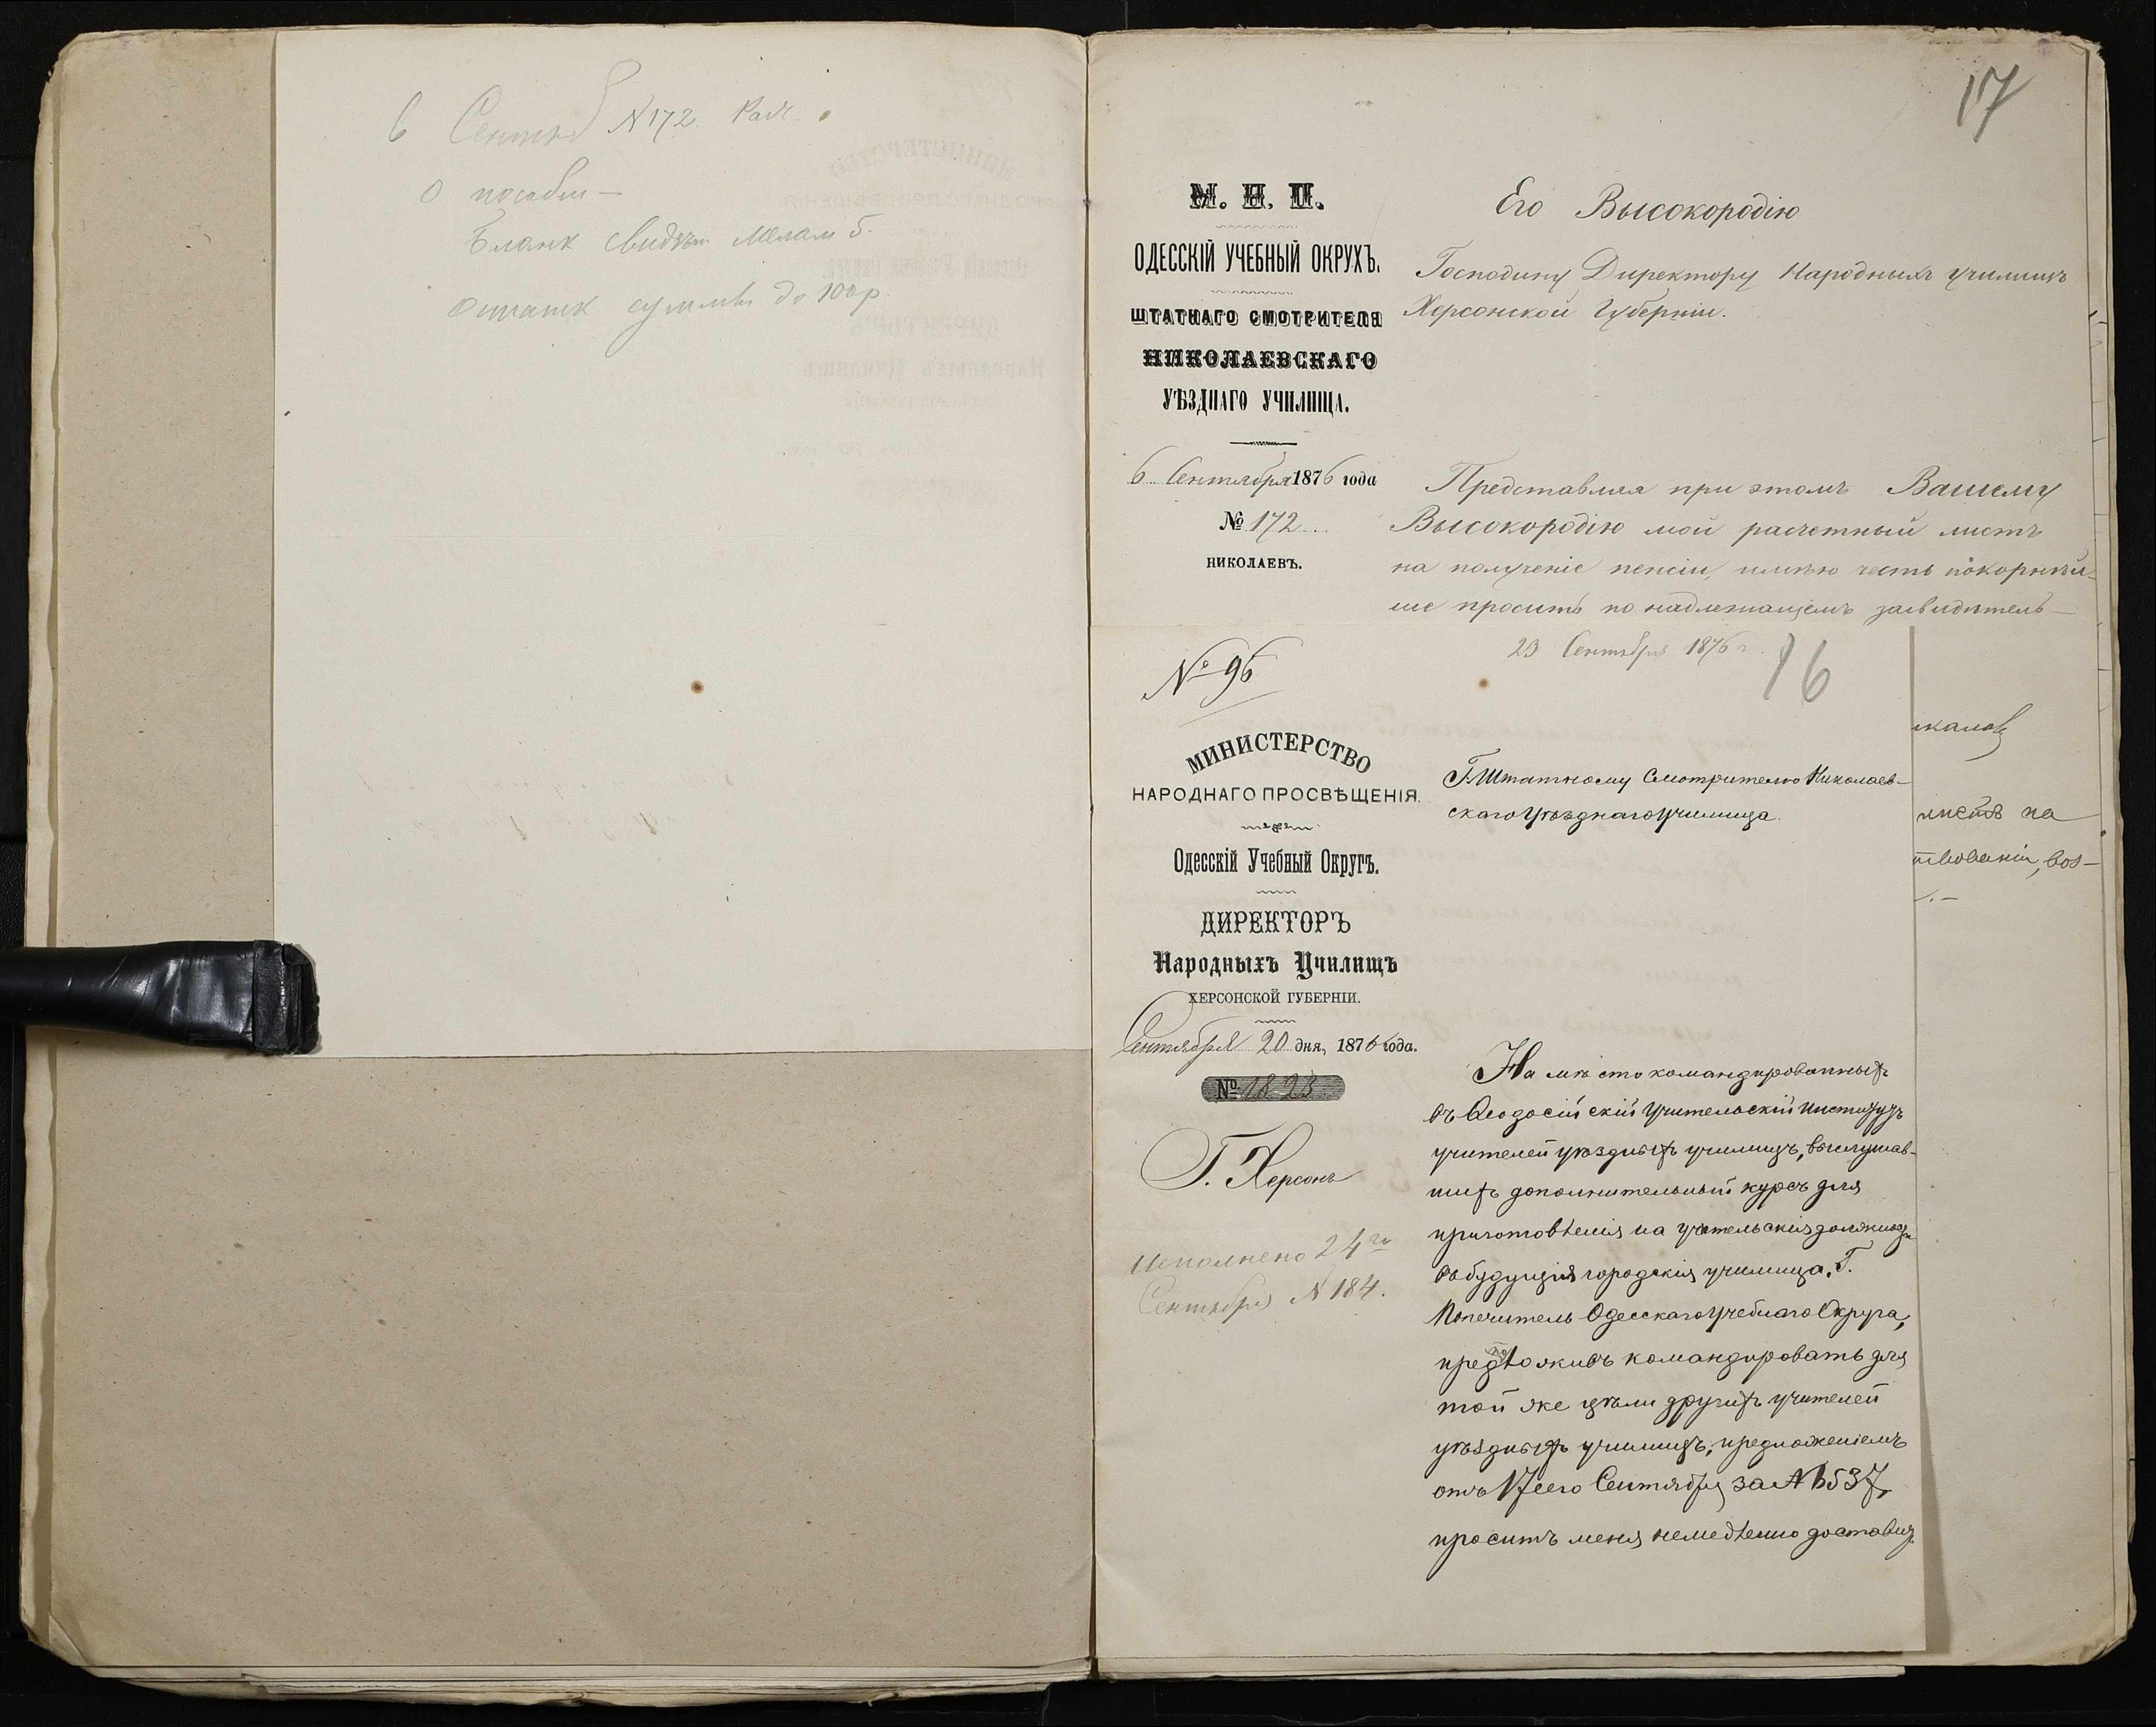 6 Сентяб N 172
О пособии —
Бланк свидѣт
Остаток суммы до 100 р.
17
М. Н. П.
ОДЕССКІЙ УЧЕБНЫЙ ОКРУХЪ.
ШТАТНАГО СМОТРИТЕЛЯ
НИКОЛАЕВСКАГО
УѢЗДНАГО УЧИЛИЩА.
6 Сентября 1876 года
№ 172
НИКОЛАЕВЪ.
Его Высокородію
Господину Директору Народныхъ училищъ
Херсонской Губерніи.
Представляя при этомъ Вашему
Высокородію мой расчетный листъ
на полученіе пенсіи, имѣю честь покорнѣй-
ше просить по надлежащемъ засвидѣтель-
23 Сентября 1876 г.
16
№ 96
МИНИСТЕРСТВО
НАРОДНАГО ПРОСВѢЩЕНІЯ.
Одесскій Учебный Округъ.
ДИРЕКТОРЪ
Народныхъ Училищъ
ХЕРСОНСКОЙ ГУБЕРНІИ.
Сентября 20 дня, 1876 года.
№ 1823
Г. Херсонъ
Исполнено 24го
Сентября N 184.
Г. Штатному Смотрителю Николаев-
скаго Уѣзднаго Училища.
На мѣсто командированныхъ
въ Ѳеодосійскій Учительскій Институтъ
учителей уѣздныхъ училищъ, выслушав-
шихъ дополнительный курсъ для
приготовленія на учительскія должности
въ будущія городскія училища, Г.
Попечитель Одесскаго Учебнаго Округа,
предположивъ командировать для
той же цѣли другихъ учителей
уѣздныхъ училищъ, предложеніемъ
отъ 17 сего Сентября за № 6537,
проситъ меня немедленно доставить
листъ на
ствованіи, воз-